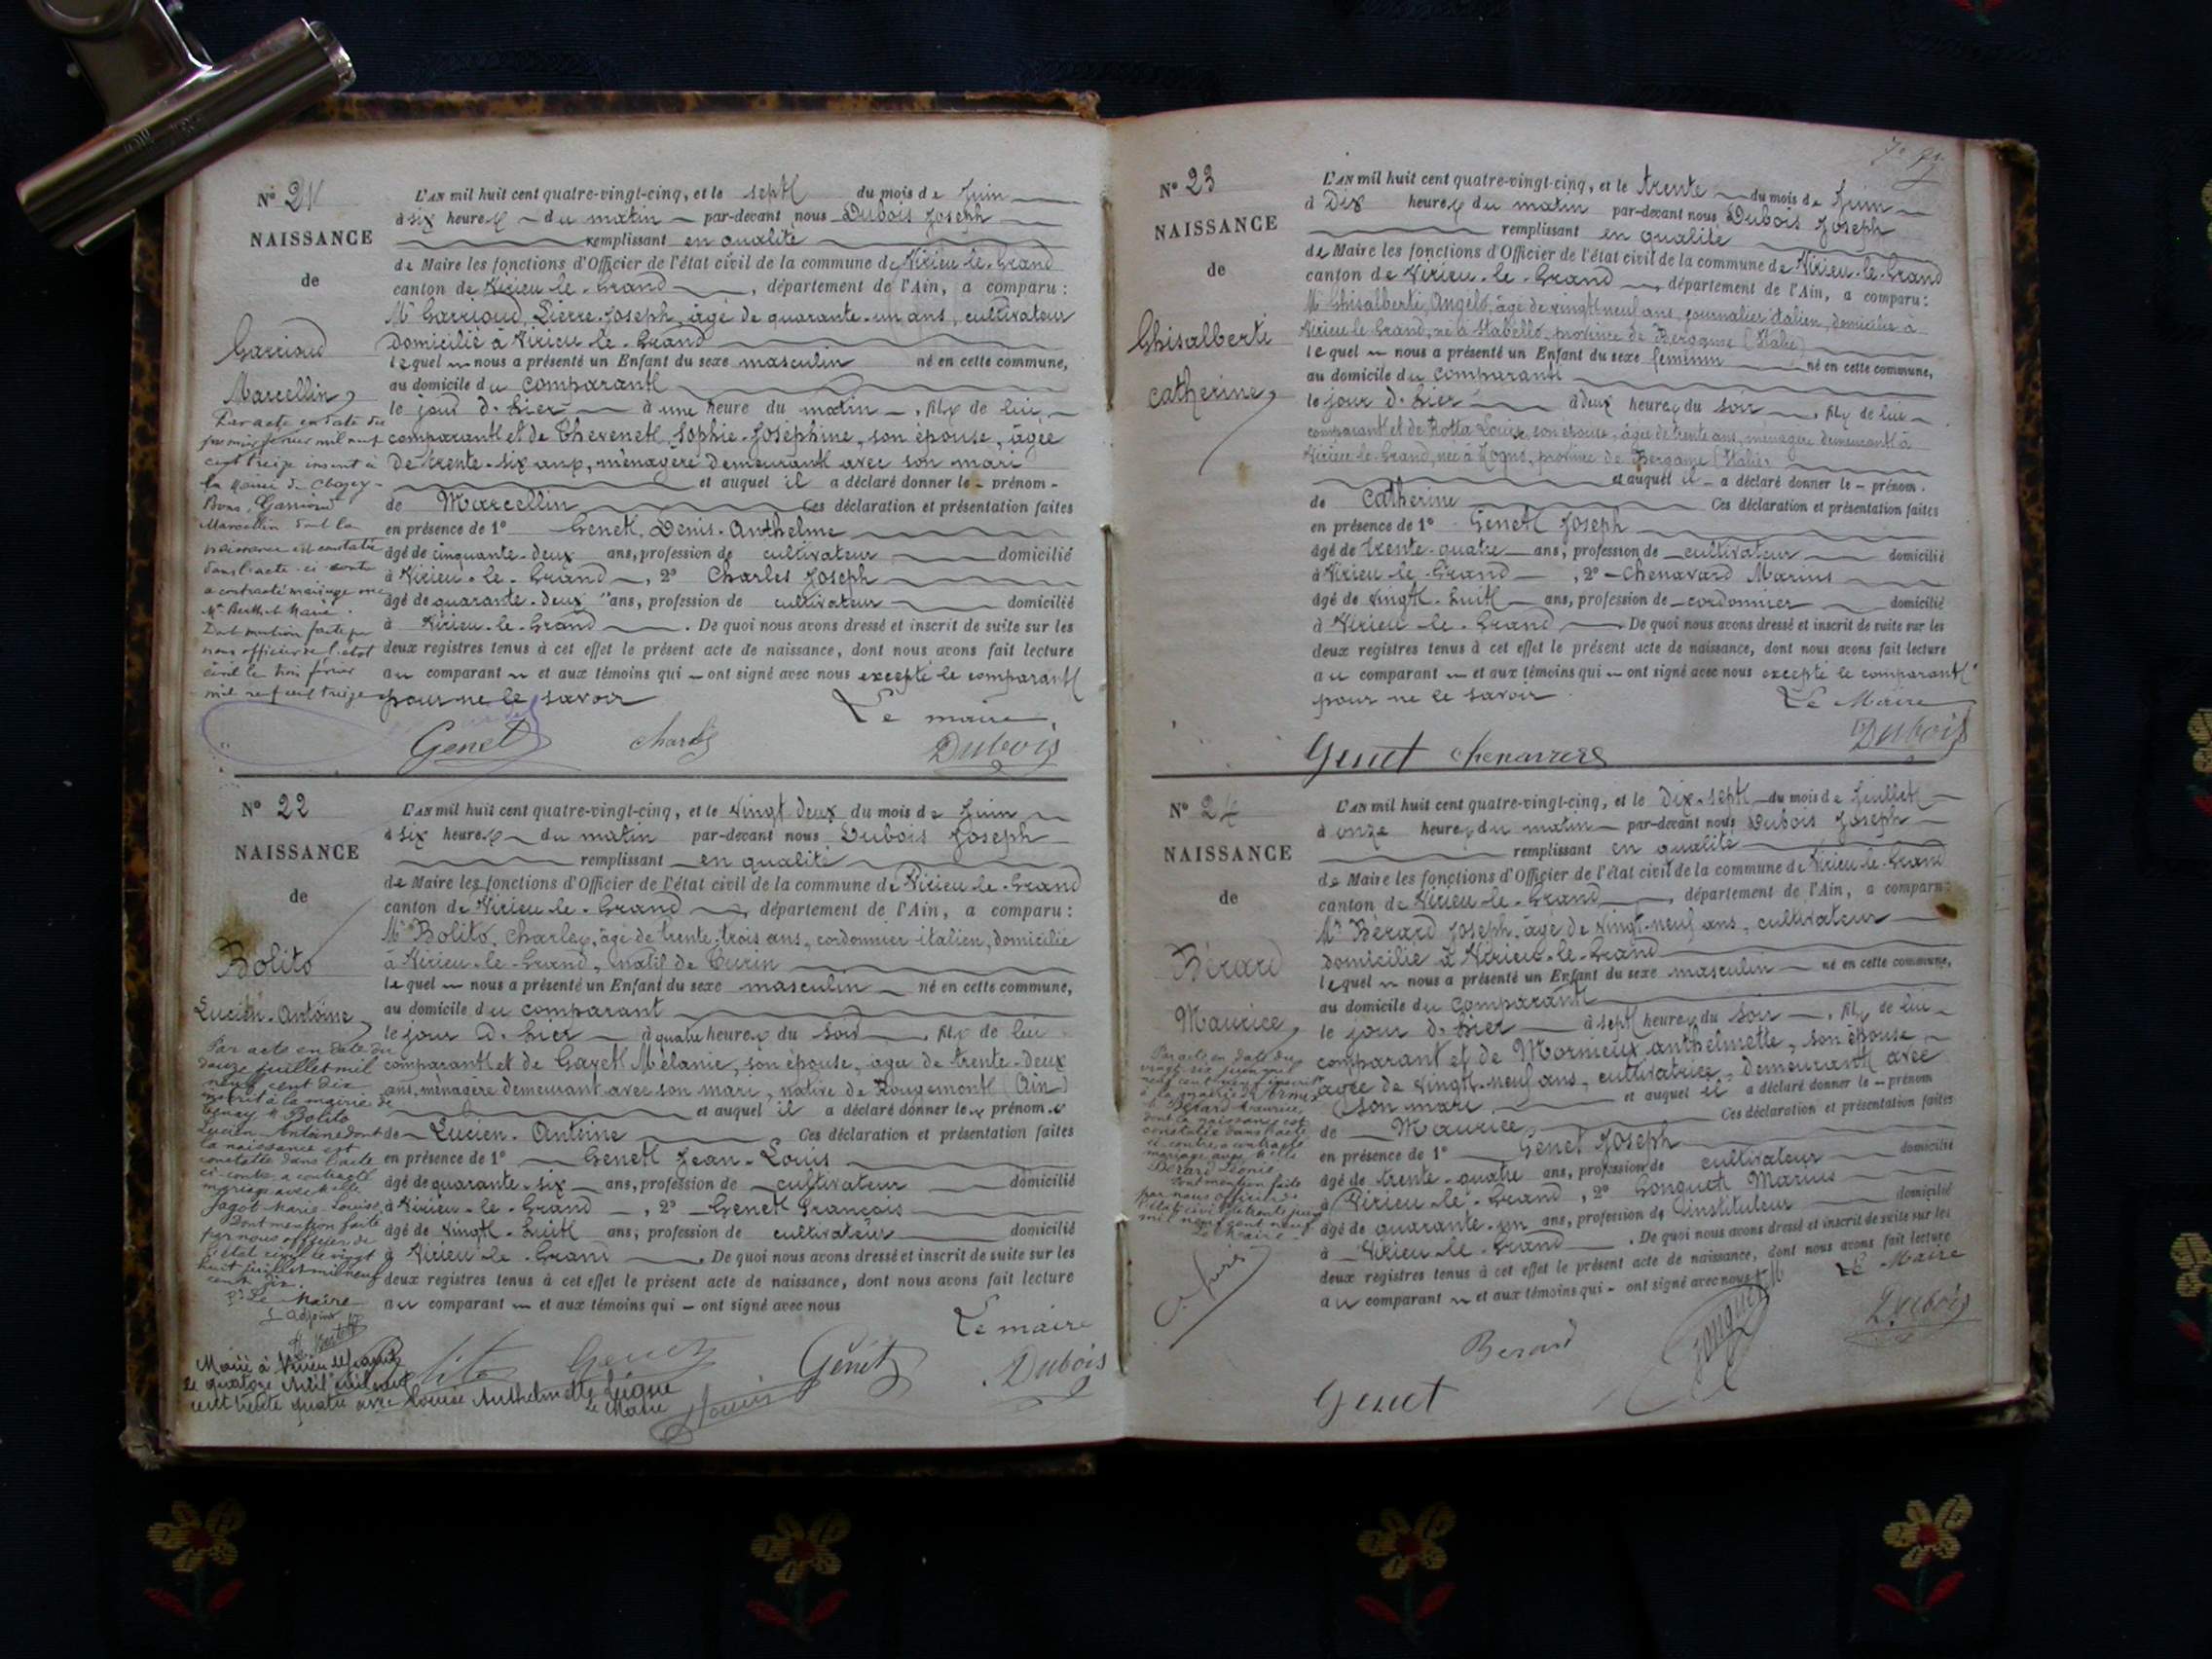 N° 21
NAISSANCE
de
Garrioud
Marcellin
Par acte en date du
premier février mil neuf
cent treize inscrit à
la Mairie de Chazey-
Bons, Garrioud
Marcellin dont la
naissance est constatée
dans l'acte ci-contre
a contracté mariage avec
Mlle Berthet Marie.
Dont mention faite par
nous officier de l'état
civil le trois février
mil neuf cent treize
L'AN mil huit cent quatre-vingt-cinq, et le sept du mois de Juin
à six heures du matin par-devant nous Dubois Joseph
remplissant en qualité
de Maire les fonctions d'Officier de l'état civil de la commune de Virieu-le-Grand
canton de Virieu-le-Grand, département de l'Ain, a comparu :
Mr Garrioud, Pierre-Joseph, âgé de quarante-un ans, cultivateur
domicilié à Virieu-le-Grand
lequel nous a présenté un Enfant du sexe masculin né en cette commune,
au domicile du comparant
le jour d'hier à une heure du matin, fils de lui
comparant et de Thevenet, Sophie-Joséphine, son épouse, âgée
de trente-six ans, ménagère demeurant avec son mari
et auquel il a déclaré donner le prénom
de Marcellin Ces déclaration et présentation faites
en présence de 1° Genet, Denis-Anthelme
âgé de cinquante-deux ans, profession de cultivateur domicilié
à Virieu-le-Grand, 2° Charles Joseph
âgé de quarante-deux ans, profession de cultivateur domicilié
à Virieu-le-Grand. De quoi nous avons dressé et inscrit de suite sur les
deux registres tenus à cet effet le présent acte de naissance, dont nous avons fait lecture
au comparant et aux témoins qui ont signé avec nous excepté le comparant
pour ne le savoir
Le maire,
Genet Charles Dubois
N° 22
NAISSANCE
de
Bolito
Lucien-Antoine
Par acte en date du
douze juillet mil
neuf cent dix
inscrit à la mairie de
Tenay M. Bolito
Lucien-Antoine dont
la naissance est
constatée dans l'acte
ci-contre, a contracté
mariage avec Mlle
Jagot Marie-Louise
Dont mention faite
par nous officier de
l'état civil le vingt
huit juillet mil neuf
cent dix.
Pr Le Maire
L'adjoint
Marié à Virieu le Grand
le quatorze Avril mil neuf
cent trente quatre avec Louise Anthelmette
Le Maire
L'AN mil huit cent quatre-vingt-cinq, et le vingt deux du mois de Juin
à six heures du matin par-devant nous Dubois Joseph
remplissant en qualité
de Maire les fonctions d'Officier de l'état civil de la commune de Virieu-le-Grand
canton de Virieu-le-Grand, département de l'Ain, a comparu :
Mr Bolito, Charles, âgé de trente-trois ans, cordonnier italien, domicilié
à Virieu-le-Grand, natif de Turin
lequel nous a présenté un Enfant du sexe masculin né en cette commune,
au domicile du comparant
le jour d'hier à quatre heures du soir, fils de lui
comparant et de Gayet Mélanie, son épouse, âgée de trente-deux
ans, ménagère demeurant avec son mari, native de Rougemont (Ain)
et auquel il a déclaré donner les prénoms
de Lucien-Antoine Ces déclaration et présentation faites
en présence de 1° Genet Jean-Louis
âgé de quarante-six ans, profession de cultivateur domicilié
à Virieu-le-Grand, 2° Genet François
âgé de vingt-huit ans, profession de cultivateur domicilié
à Virieu-le-Grand. De quoi nous avons dressé et inscrit de suite sur les
deux registres tenus à cet effet le présent acte de naissance, dont nous avons fait lecture
au comparant et aux témoins qui ont signé avec nous
Le maire
Bolito Genet Louis Genet Dubois
N° 23
NAISSANCE
de
Ghisalberti
Catherine
L'AN mil huit cent quatre-vingt-cinq, et le trente du mois de Juin
à Dix heures du matin par-devant nous Dubois Joseph
remplissant en qualité
de Maire les fonctions d'Officier de l'état civil de la commune de Virieu-le-Grand
canton de Virieu-le-Grand, département de l'Ain, a comparu :
Mr Ghisalberti, Angelo, âgé de vingt-neuf ans, journalier italien, domicilié à
Virieu-le-Grand, né à Stabello, province de Bergame (Italie)
lequel nous a présenté un Enfant du sexe féminin né en cette commune,
au domicile du comparant
le jour d'hier à deux heures du soir, fils de lui
comparant et de Rotta Louise, son épouse, âgée de trente ans, ménagère demeurant à
Virieu-le-Grand, née à Rogno, province de Bergame (Italie)
et auquel il a déclaré donner le prénom
de Catherine Ces déclaration et présentation faites
en présence de 1° Genet Joseph
âgé de trente-quatre ans, profession de cultivateur domicilié
à Virieu-le-Grand, 2° Chenavard Marius
âgé de vingt-huit ans, profession de cordonnier domicilié
à Virieu-le-Grand De quoi nous avons dressé et inscrit de suite sur les
deux registres tenus à cet effet le présent acte de naissance, dont nous avons fait lecture
au comparant et aux témoins qui ont signé avec nous excepté le comparant
pour ne le savoir.
Le Maire
Genet Chenavard Dubois
N° 24
NAISSANCE
de
Bérard
Maurice
Par acte en date du
vingt-six juin mil
neuf cent neuf inscrit
à la mairie de
M. Bérard Maurice,
dont la naissance est
constatée dans l'acte
ci-contre a contracté
mariage avec Mlle
Bérard Léonie
Dont mention faite
par nous officier de
l'état civil le trente juin
mil neuf cent neuf
Le Maire
L'AN mil huit cent quatre-vingt-cinq, et le Dix-sept du mois de Juillet
à onze heures du matin par-devant nous Dubois Joseph
remplissant en qualité
de Maire les fonctions d'Officier de l'état civil de la commune de Virieu-le-Grand
canton de Virieu-le-Grand, département de l'Ain, a comparu
Mr Bérard Joseph, âgé de vingt-neuf ans, cultivateur
domicilié à Virieu-le-Grand
lequel nous a présenté un Enfant du sexe masculin né en cette commune,
au domicile du comparant
le jour d'hier à sept heures du soir, fils de lui
comparant et de Mornieux anthelmette, son épouse
âgée de vingt-neuf ans, cultivatrice, demeurant avec
son mari et auquel il a déclaré donner le prénom
de Maurice Ces déclaration et présentation faites
en présence de 1° Genet Joseph
âgé de trente-quatre ans, profession de cultivateur domicilié
à Virieu-le-Grand, 2° Gonguet Marius
âgé de quarante-un ans, profession de instituteur domicilié
à Virieu-le-Grand. De quoi nous avons dressé et inscrit de suite sur les
deux registres tenus à cet effet le présent acte de naissance, dont nous avons fait lecture
au comparant et aux témoins qui ont signé avec nous
Le Maire
Berard Gonguet Dubois
Genet